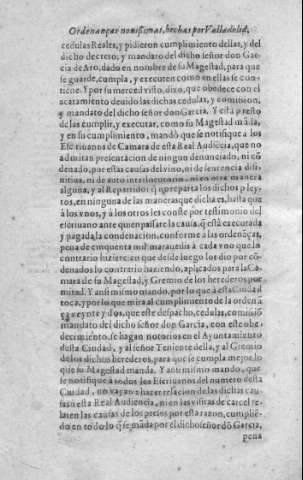 Ordenanças nouissimas, hechas por Valladolid,
cedulas Reales, y pidieron cumplimiento dellas, y del
dicho decreto, y mandato del dicho señor don Gar
cia de Aro, dado en nombre de su Magestad, para que
se guarde, cumpla, y executen como en ellas se con-
tiene. Y por su merced visto, dixo, que obedece con el
acatamiento deuido las dichas cedulas, y comission,
y mandato del dicho señor don Garcia. Y està presto
de las cumplir, y executar, como su Magestad mãda,
y en su cumplimiento, mandò que se notifique à los
Escriuanos de Camara de esta Real Audiẽcia, que no
admitan presentacion de ningun denunciado, ni cõ
denado, por estas causas del vino, ni de sentencia difi-
nitiua, ni de auto interlocutorio, ni en otra manera
alguna, y al Repartidor q̃ no reparta los dichos pley-
tos, en ninguna de las maneras que dicha es, hasta que
à los vnos, y à los otros les conste por testimonio del
escriuano ante quien passare la causa, q̃ està executada
y pagada la condenacion, conforme à las ordenãças,
pena de cinquenta mil marauedis à cada vno que lo
contrario hiziere: en que desde luego los dio por cõ
denados lo contrario haziendo, aplicados para la Ca
mara de su Magestad, y Gremio de los herederos por
mitad. Y ansimismo mando, por lo que à esta Ciudad
toca, y por lo que mira al cumplimiento de la ordenã
ça veynte y dos, que este despacho, cedulas, comissiõ
mandato del dicho señor don Garcia, con este obe-
decimiento, se hagan notorios en el Ayuntamiento
desta Ciudad, y al señor Teniente della, y al Gremio
de los dichos herederos, para que se cumpla mejor lo
que su Magestad manda. Y ansimismo mando, que
se notifique à todos los Escriuanos del numero desta
Ciudad, no vayan à hazer relacion de las dichas cau-
sas à esta Real Audiencia, ni en las visitas de carcel re
laten las causas de los presos por esta razon, cumpliẽ-
do en todo lo q̃ se mãda por el dicho señor dõ Garcia,
pena